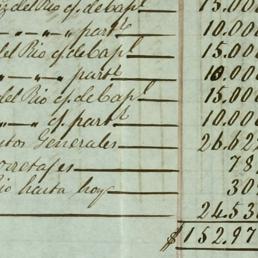 iz del Rio cf. de Capl. 15.000
" " " " partl 10.000
del Rio cf. de Capl. 15.000
" " " " partl 10.000
del Rio cf. de Capl. 15.000
" " " cf. partl 10.000
stos Generales 26.622
orretajes 782
io hasta hoy 30
24.53
$ 152.97